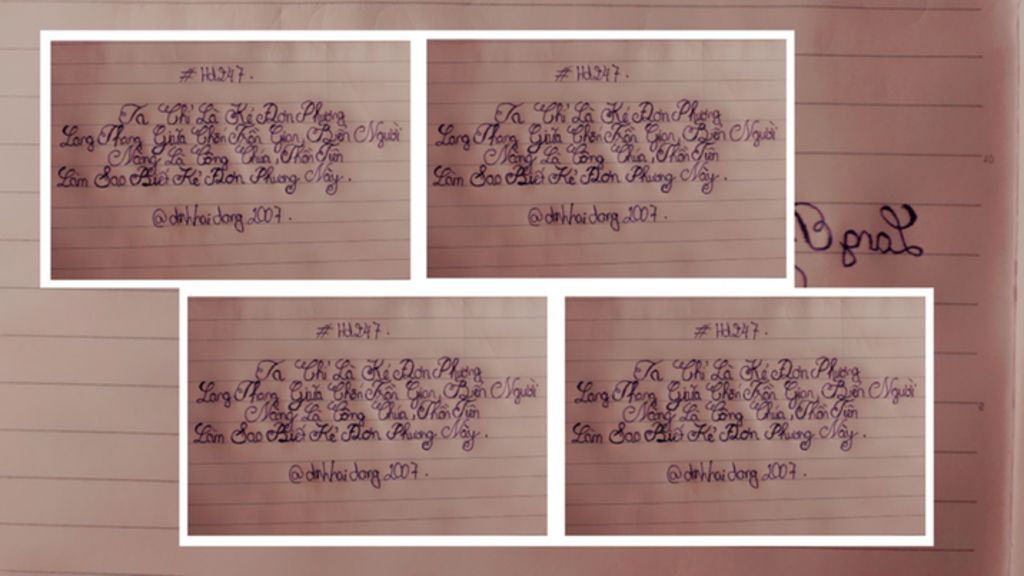 #Hd247.
Ta Chỉ Là Kẻ Đơn Phương
Lang Thang Giữa Chốn Trần Gian, Biển Người
Nàng Là Công Chúa, Thần Tiên
Làm Sao Biết Kẻ Đơn Phương Này.
@dinhhaidang2007.
#Hd247.
Ta Chỉ Là Kẻ Đơn Phương
Lang Thang Giữa Chốn Trần Gian, Biển Người
Nàng Là Công Chúa, Thần Tiên
Làm Sao Biết Kẻ Đơn Phương Này.
@dinhhaidang2007.
40
#Hd247.
Ta Chỉ Là Kẻ Đơn Phương
Lang Thang Giữa Chốn Trần Gian, Biển Người
Nàng Là Công Chúa, Thần Tiên
Làm Sao Biết Kẻ Đơn Phương Này.
@dinhhaidang2007.
#Hd247.
Ta Chỉ Là Kẻ Đơn Phương
Lang Thang Giữa Chốn Trần Gian, Biển Người
Nàng Là Công Chúa, Thần Tiên
Làm Sao Biết Kẻ Đơn Phương Này.
@dinhhaidang2007.